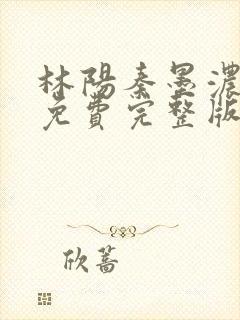 林陽秦墨濃
免費完整版
欣蕎